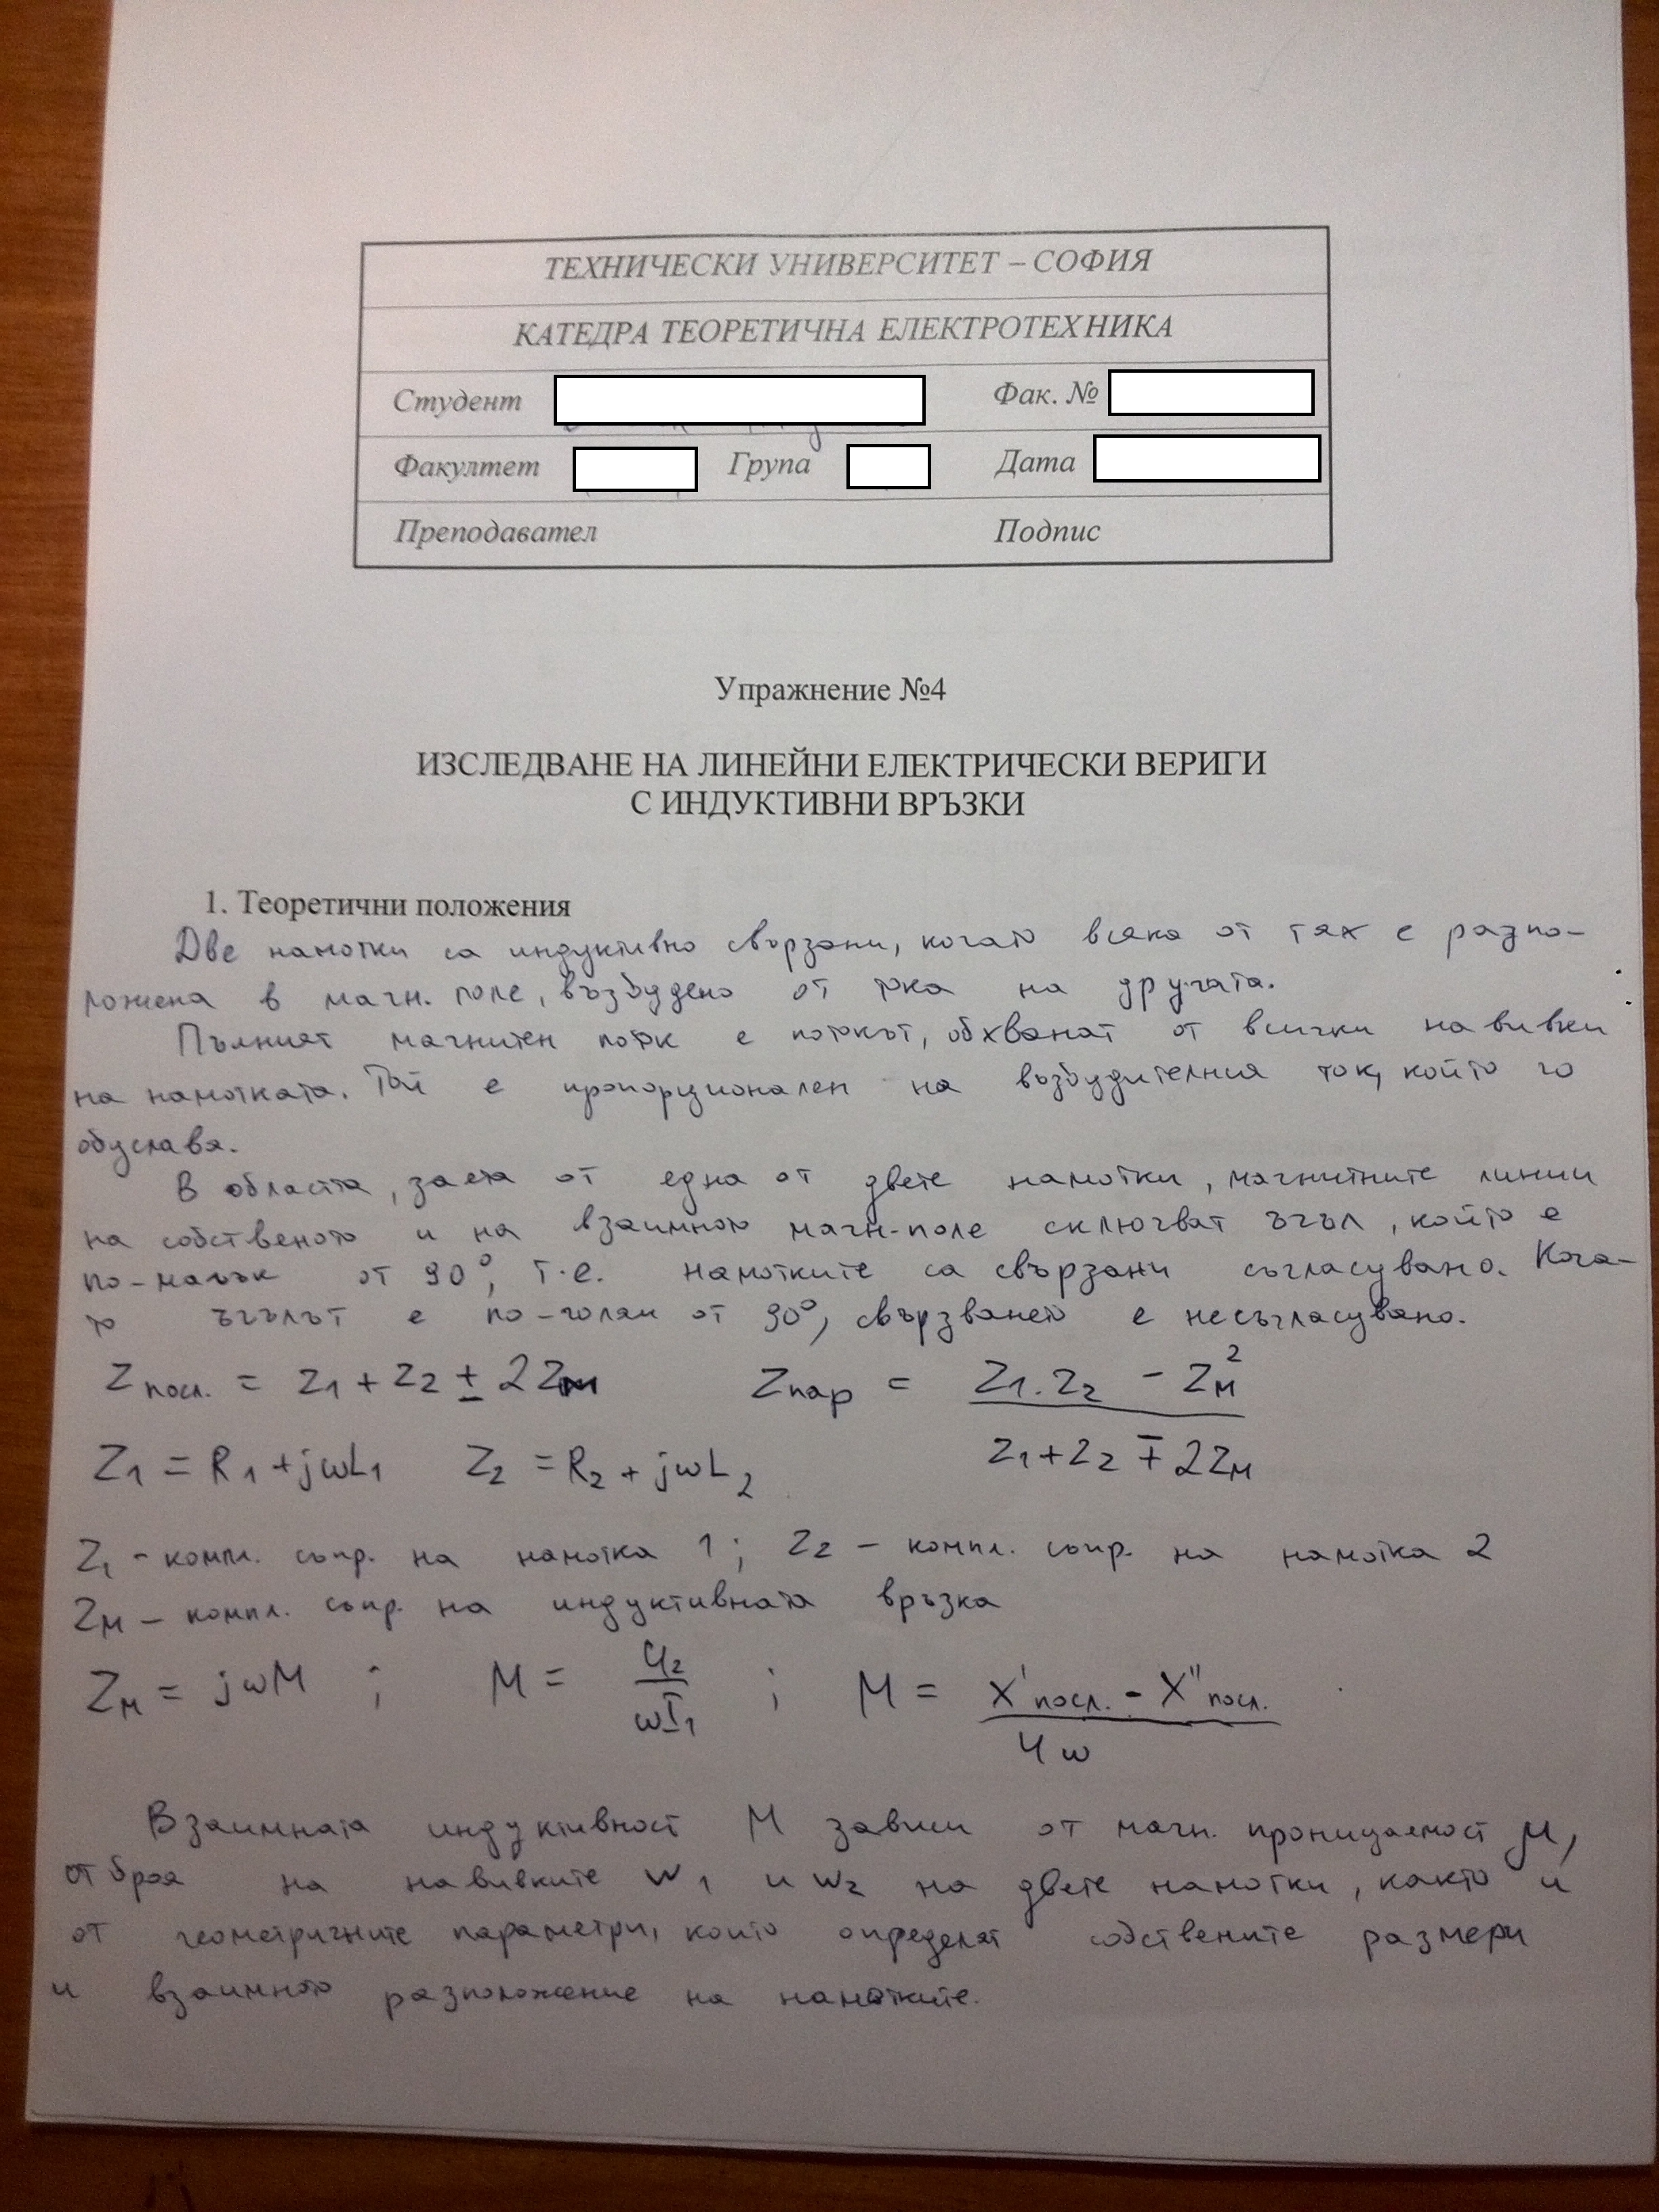 ТЕХНИЧЕСКИ УНИВЕРСИТЕТ – СОФИЯ
КАТЕДРА ТЕОРЕТИЧНА ЕЛЕКТРОТЕХНИКА
Студент Фак. №
Факултет Група Дата
Преподавател Подпис
Упражнение №4
ИЗСЛЕДВАНЕ НА ЛИНЕЙНИ ЕЛЕКТРИЧЕСКИ ВЕРИГИ
С ИНДУКТИВНИ ВРЪЗКИ
1. Теоретични положения
Две намотки са индуктивно свързани, когато всяка от тях е разпо-
ложена в магн. поле, възбудено от тока на другата.
Пълният магнитен поток е потокът, обхванат от всички навивки
на намотката. Той е пропорционален на възбудителния ток, който го
обуславя.
В областта, заета от една от двете намотки, магнитните линии
на собственото и на взаимното магн. поле сключват ъгъл, който е
по-малък от 90°, т.е. намотките са свързани съгласувано. Кога-
то ъгълът е по-голям от 90°, свързването е несъгласувано.
Zпосл. = Z1 + Z2 ± 2ZM Zпар = (Z1.Z2 - ZM²) / (Z1+Z2 ∓ 2ZM)
Z1 = R1 + jωL1 Z2 = R2 + jωL2
Z1 - компл. съпр. на намотка 1; Z2 - компл. съпр. на намотка 2
ZM - компл. съпр. на индуктивната връзка
ZM = jωM ; M = U2 / ωI1 ; M = (X'посл. - X''посл.) / 4ω
Взаимната индуктивност M зависи от магн. проницаемост μ,
от броя на навивките w1 и w2 на двете намотки, както и
от геометричните параметри, които определят собствените размери
и взаимното разположение на намотките.